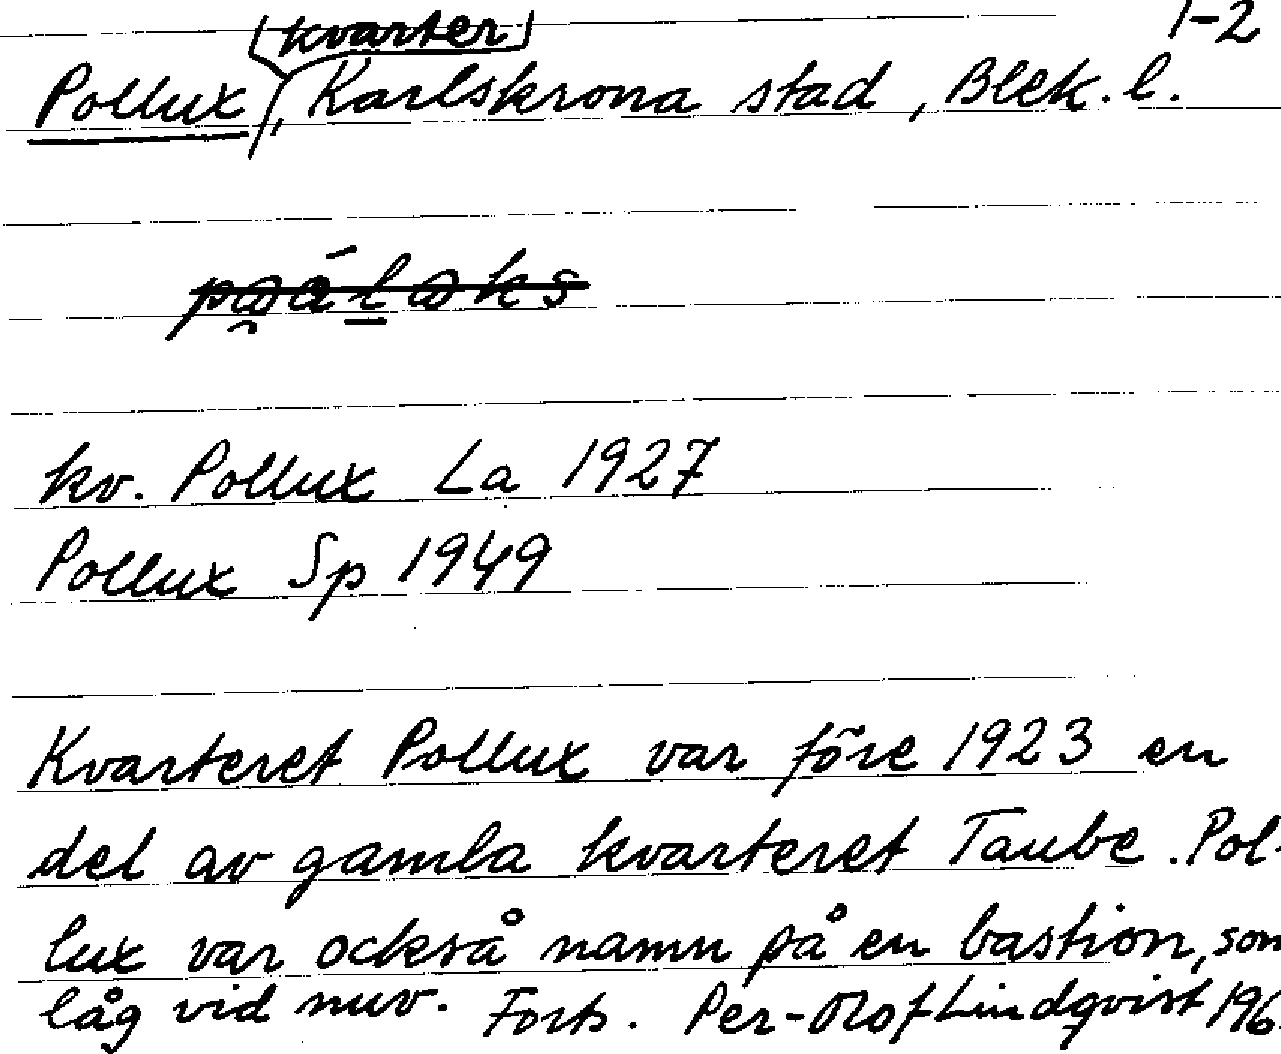 kvarter 1-2
Pollux, Karlskrona stad, Blek. l.
kv. Pollux La 1927
Pollux Sp 1949
Kvarteret Pollux var före 1923 en
del av gamla kvarteret Taube. Pol-
lux var också namn på en bastion, som
låg vid nuv. Forts. Per-Olof Lindqvist 196